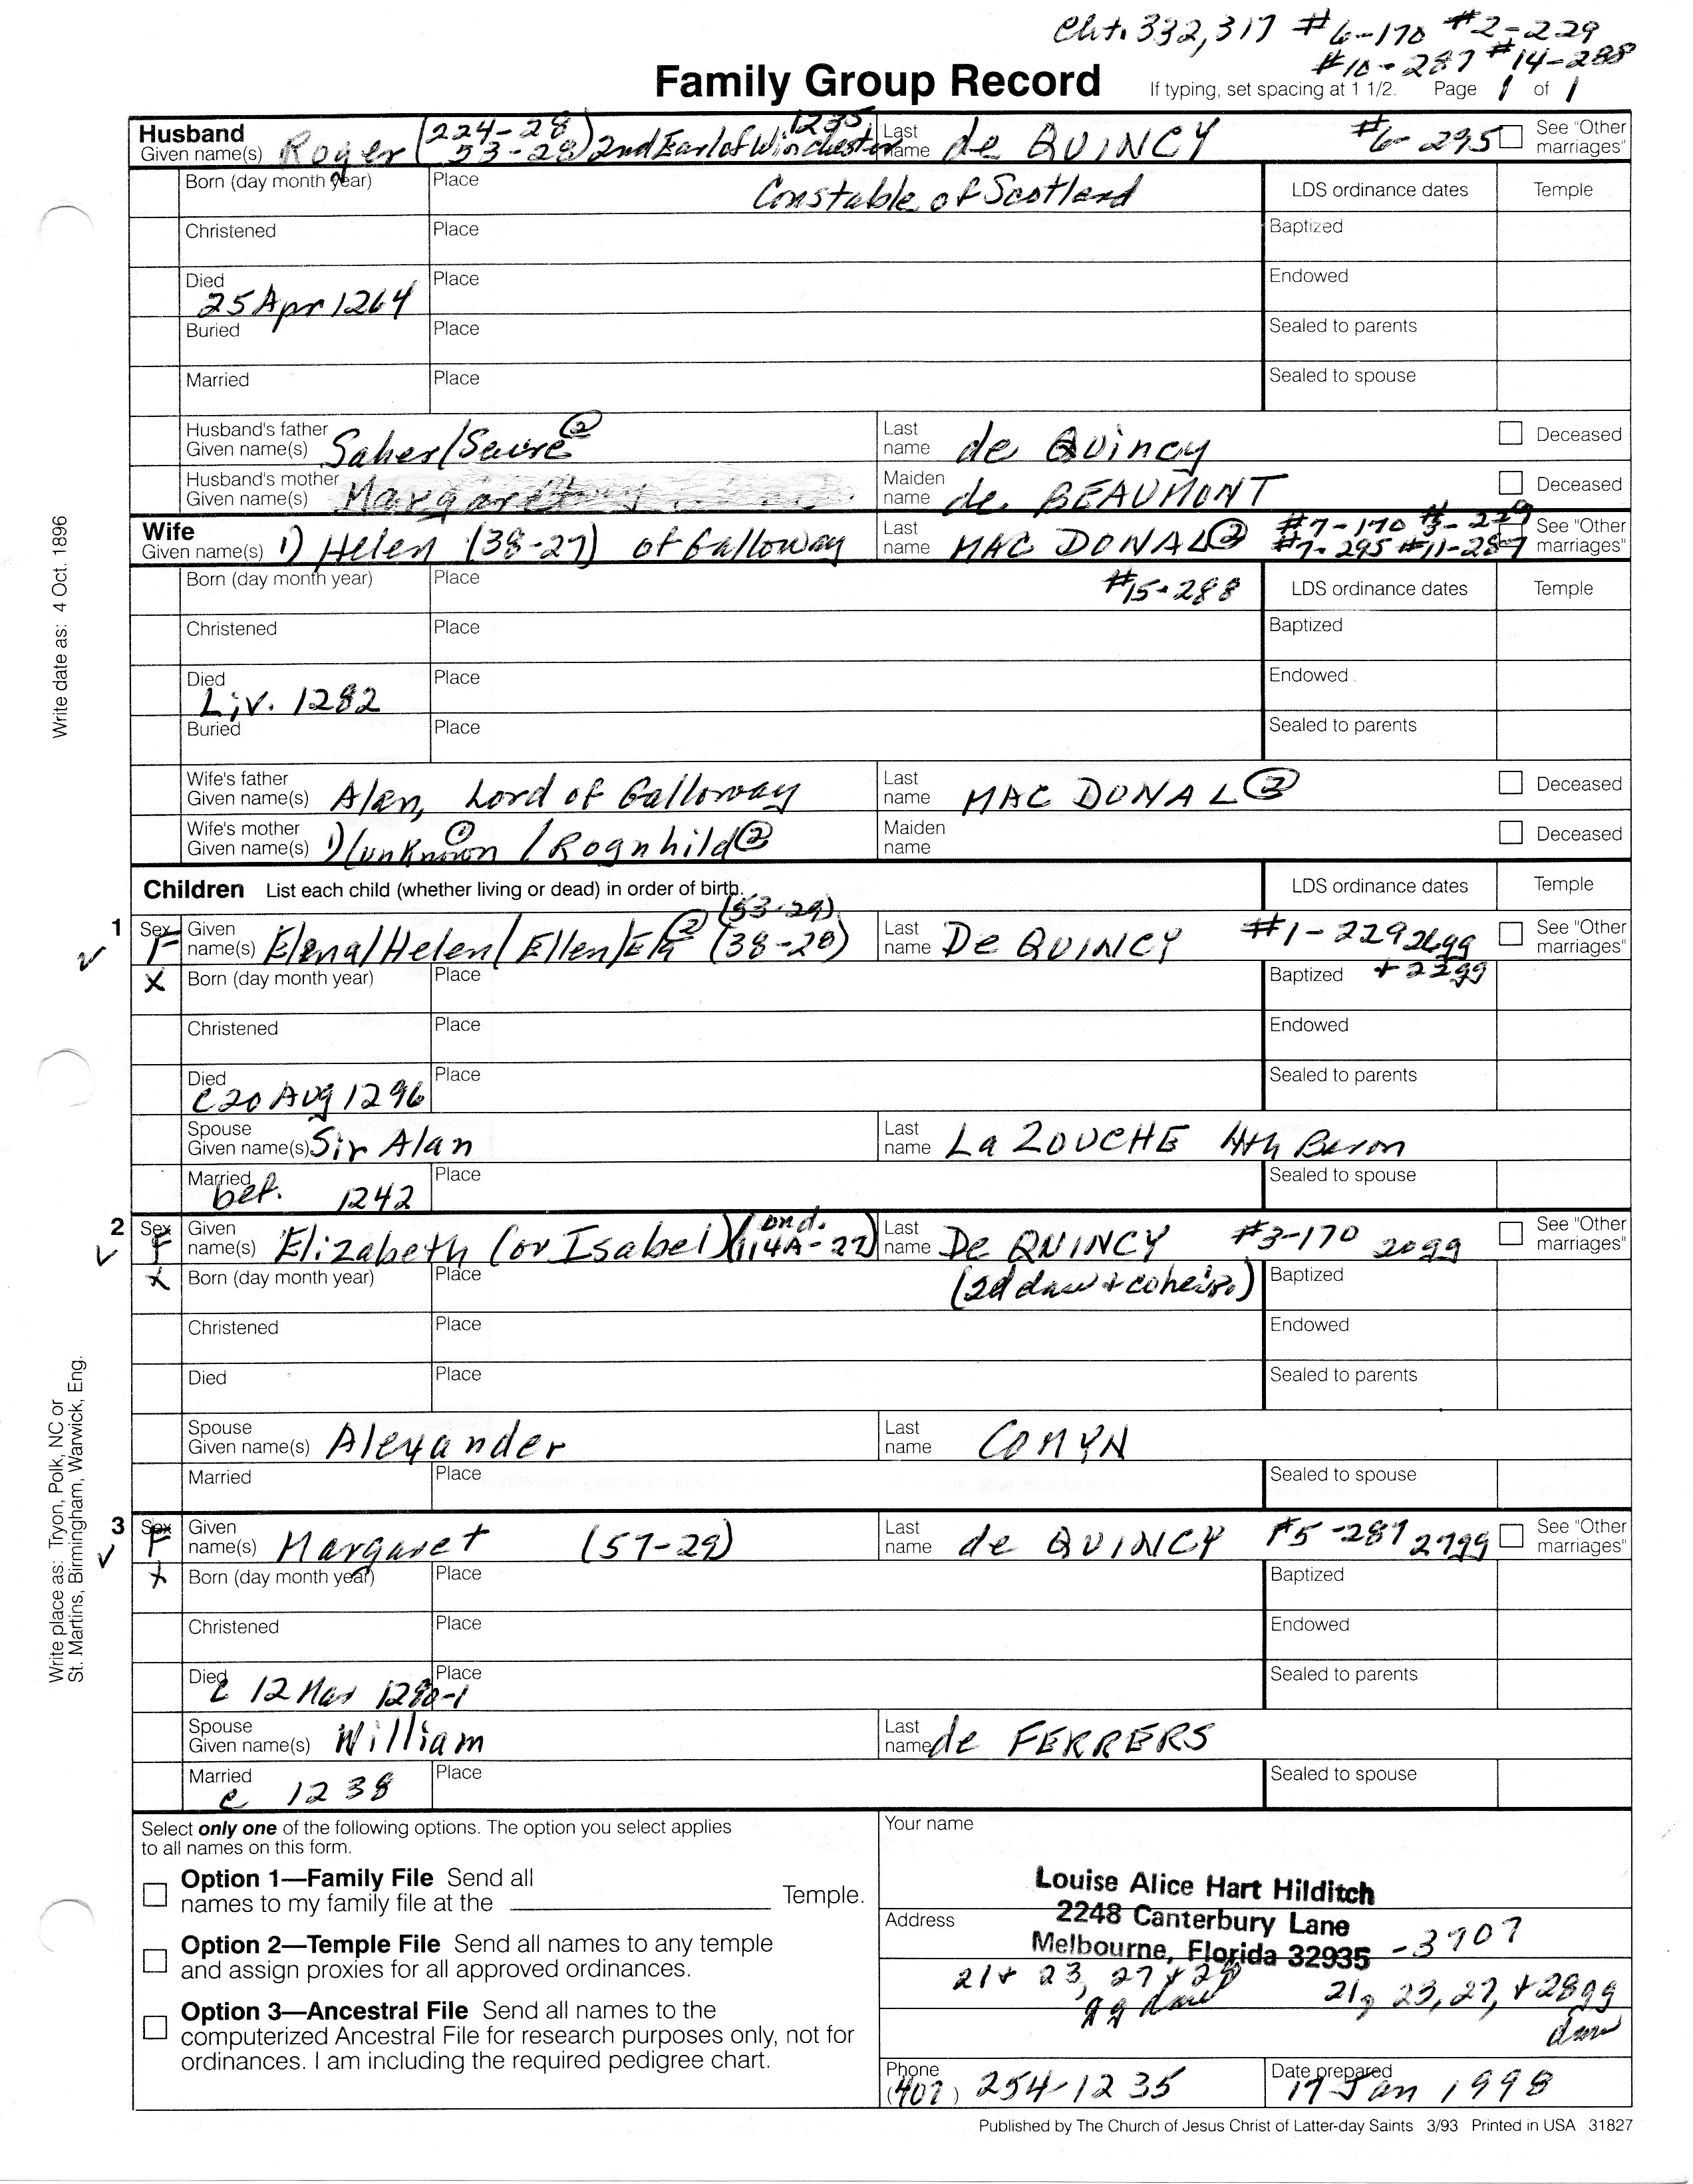 Cht. 332, 317 #6-170 #2-229
#10-287 #14-288
Family Group Record If typing, set spacing at 1 1/2. Page 1 of 1
Husband Given name(s) Roger (224-28 53-28) 2nd Earl of Winchester 1235 Last name de QUINCY #6-295 See "Other marriages"
Born (day month year) Place Constable of Scotland LDS ordinance dates Temple
Christened Place Baptized
Died 25 Apr 1264 Place Endowed
Buried Place Sealed to parents
Married Place Sealed to spouse
Husband's father Given name(s) Saher/Seure ② Last name de Quincy Deceased
Husband's mother Given name(s) Margaret Maiden name de BEAUMONT Deceased
Wife Given name(s) 1) Helen (38-27) of Galloway Last name MAC DONAL② #7-170 #3-229 #7-295 #11-287 See "Other marriages"
Born (day month year) Place #15-288 LDS ordinance dates Temple
Christened Place Baptized
Died Liv. 1282 Place Endowed
Buried Place Sealed to parents
Wife's father Given name(s) Alan, Lord of Galloway Last name MAC DONAL② Deceased
Wife's mother Given name(s) 1) (unknown ① / Rognhild② Maiden name Deceased
Children List each child (whether living or dead) in order of birth. LDS ordinance dates Temple
(53-29)
1 Sex F Given name(s) Elena/Helen/Ellen/Ela ② (38-28) Last name De QUINCY #1-229 26gg See "Other marriages"
X Born (day month year) Place Baptized + 22gg
Christened Place Endowed
Died c20 Aug 1296 Place Sealed to parents
Spouse Given name(s) Sir Alan Last name La ZOUCHE 4th Baron
Married bef. 1242 Place Sealed to spouse
2 Sex F Given name(s) Elizabeth (or Isabel) (114A-27) Last name De QUINCY #3-170 20gg See "Other marriages"
X Born (day month year) Place (2d daw + coheir.) Baptized
Christened Place Endowed
Died Place Sealed to parents
Spouse Given name(s) Alexander Last name COMYN
Married Place Sealed to spouse
3 Sex F Given name(s) Margaret (57-29) Last name de QUINCY #5-287 27gg See "Other marriages"
X Born (day month year) Place Baptized
Christened Place Endowed
Died c 12 Mar 1280-1 Place Sealed to parents
Spouse Given name(s) William Last name de FERRERS
Married c 1238 Place Sealed to spouse
Select only one of the following options. The option you select applies
to all names on this form.
Option 1—Family File Send all
names to my family file at the Temple.
Option 2—Temple File Send all names to any temple
and assign proxies for all approved ordinances.
Option 3—Ancestral File Send all names to the
computerized Ancestral File for research purposes only, not for
ordinances. I am including the required pedigree chart.
Your name
Louise Alice Hart Hilditch
Address 2248 Canterbury Lane
Melbourne, Florida 32935 -3907
21+ 23, 27 + 28 gg daw 21, 23, 27, + 28gg daw
Phone (407) 254-1235 Date prepared 17 Jan 1998
Published by The Church of Jesus Christ of Latter-day Saints 3/93 Printed in USA 31827
Write date as: 4 Oct. 1896
Write place as: Tryon, Polk, NC or
St. Martins, Birmingham, Warwick, Eng.